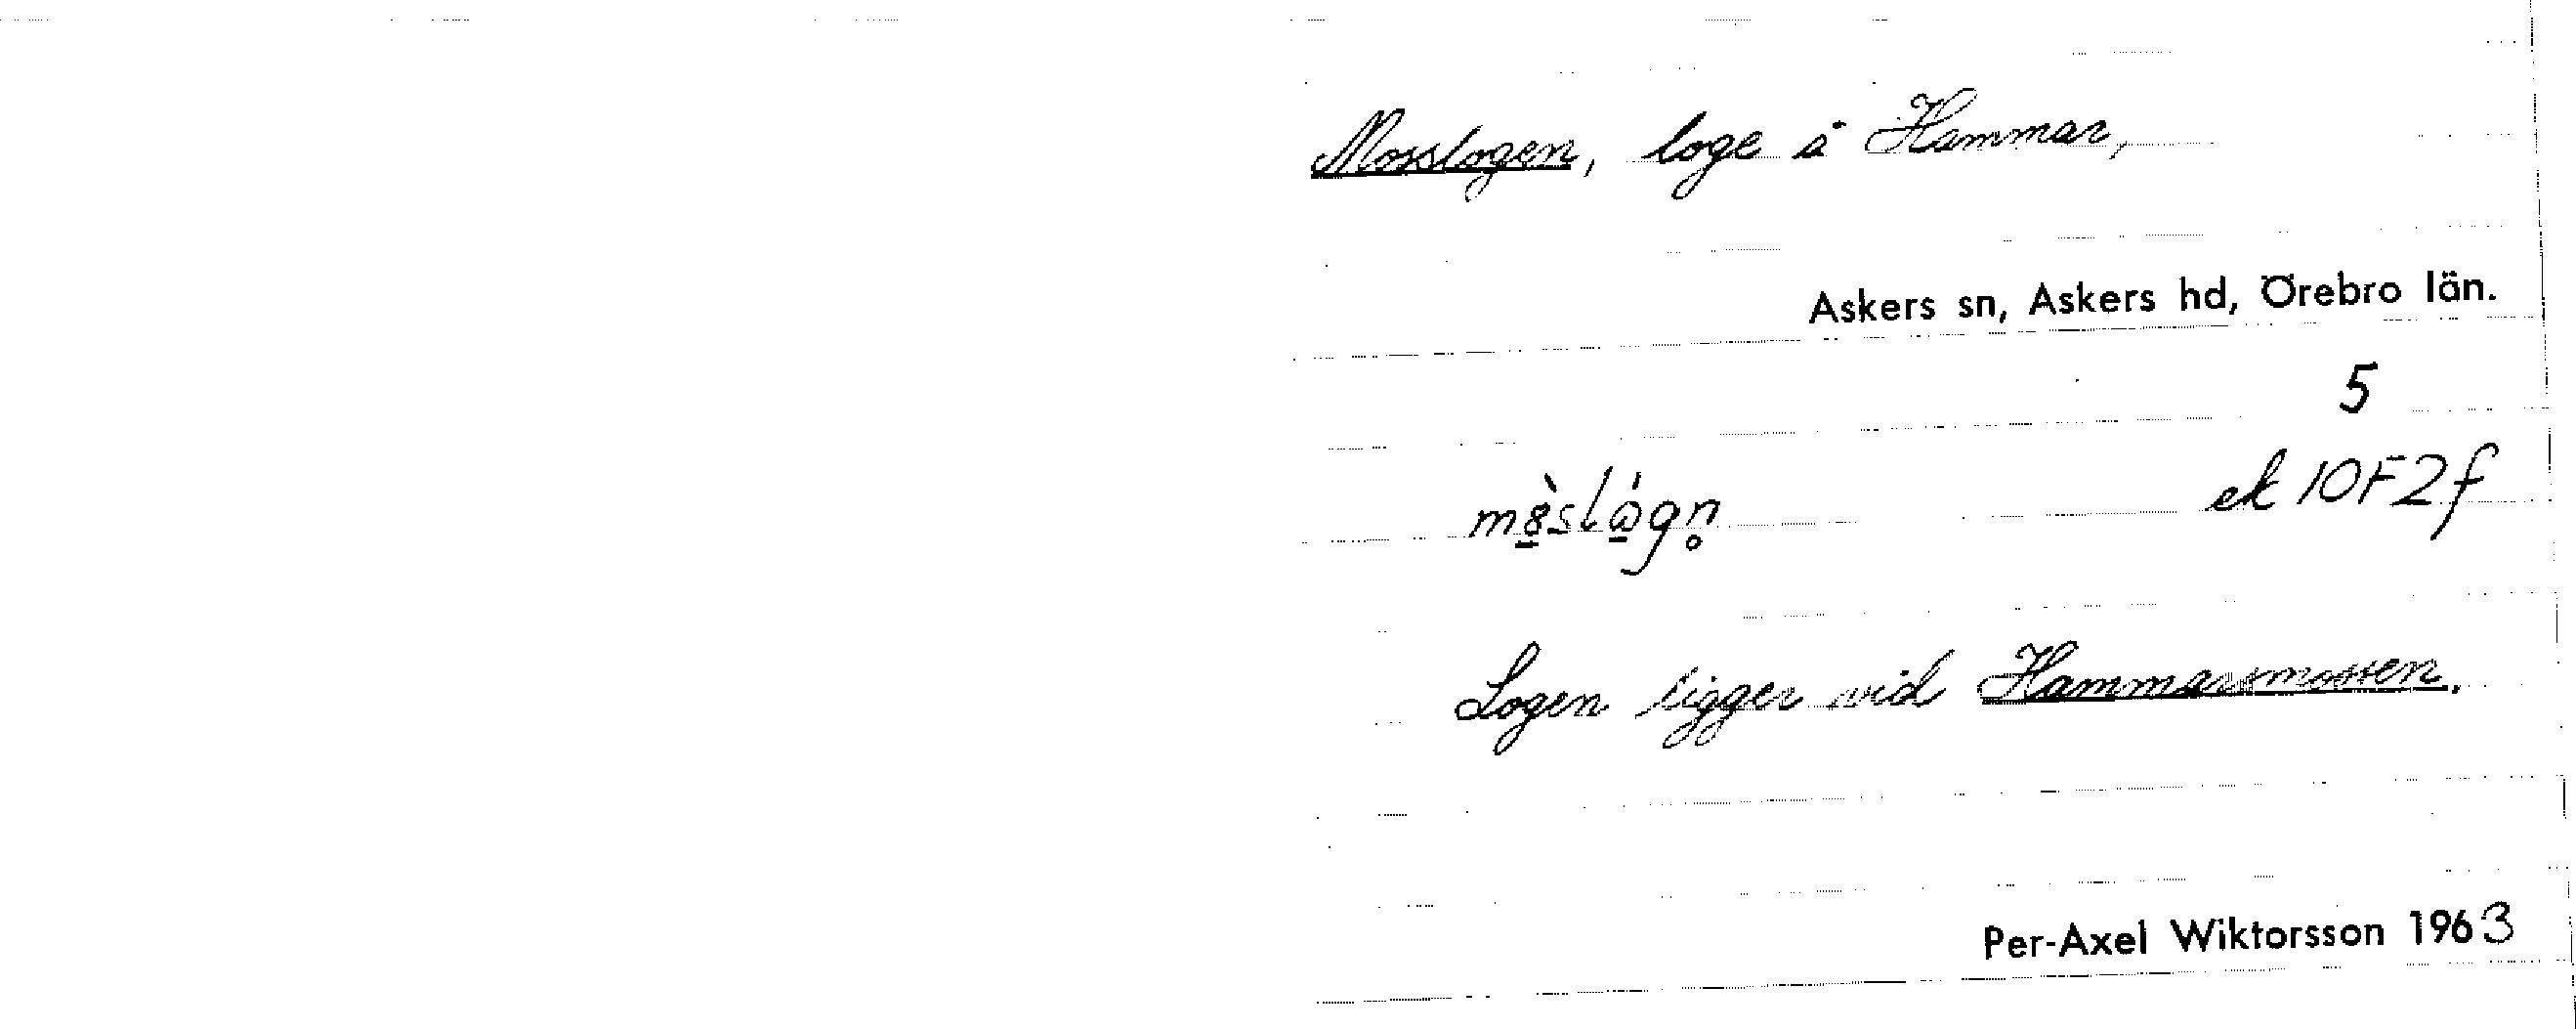 Mosslogen, loge å Hammar,
Askers sn, Askers hd, Örebro län.
5
ek 10F2f
Logen ligger vid Hammarsmossen.
Per-Axel Wiktorsson 1963